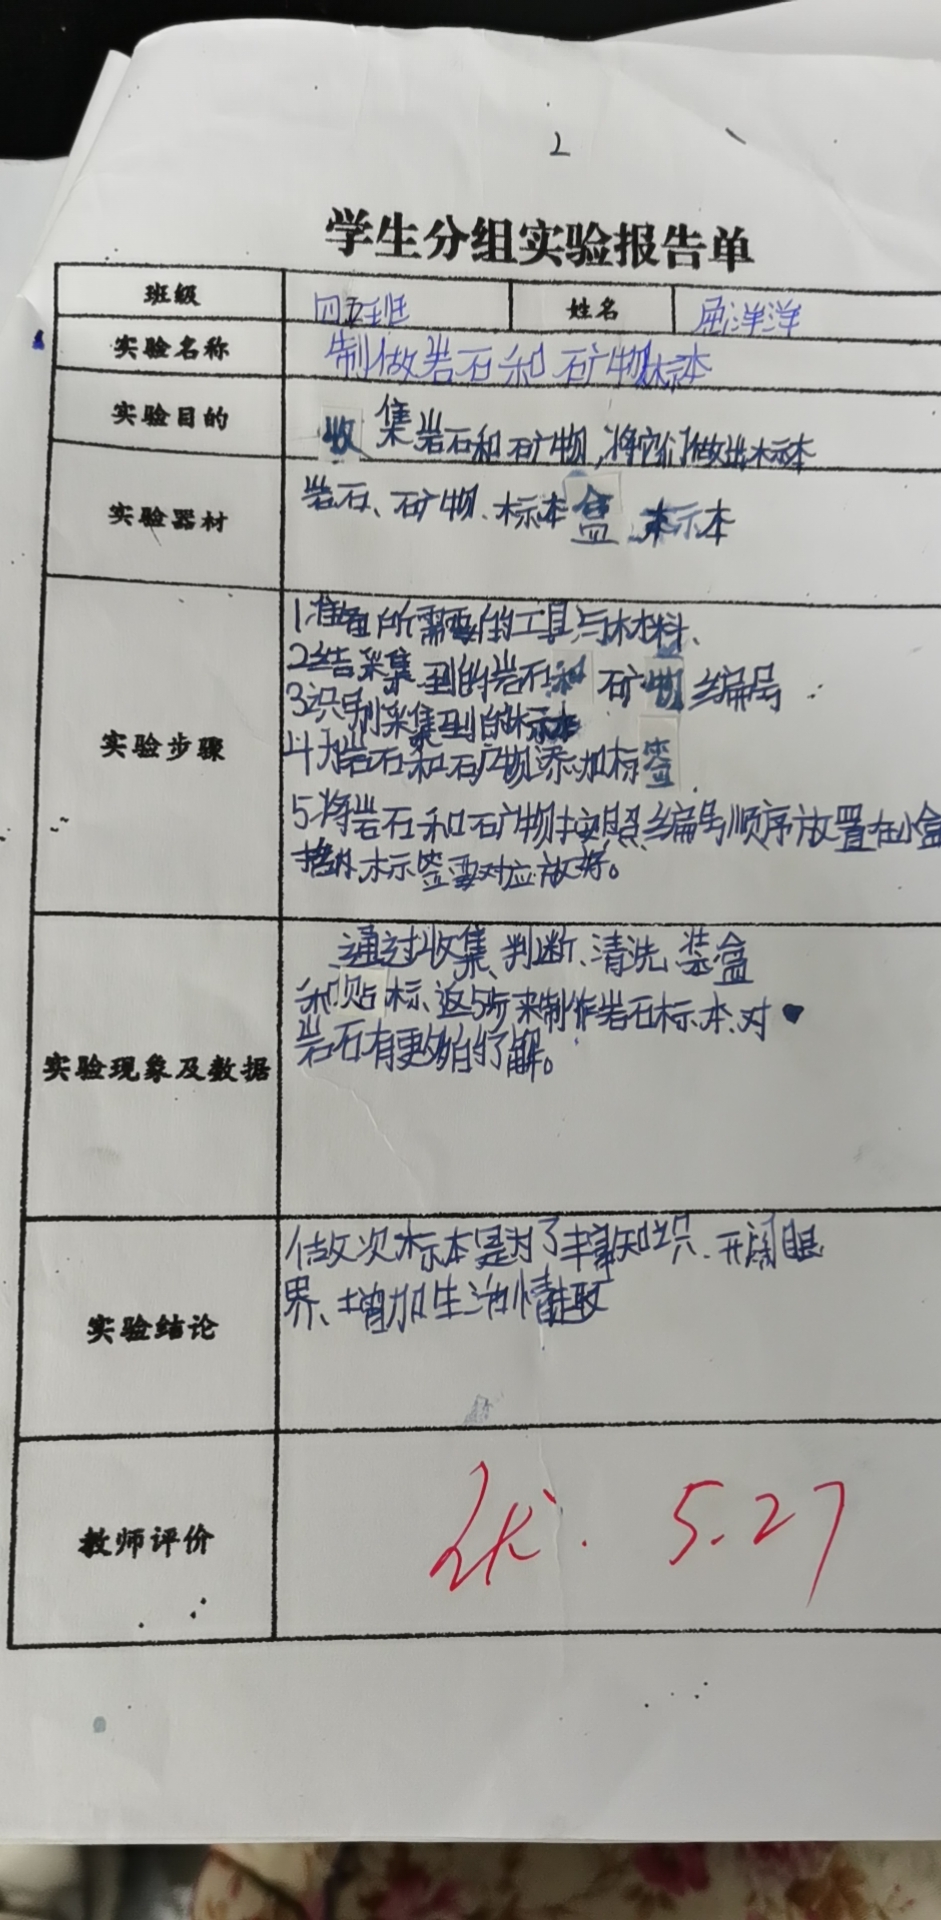 2
学生分组实验报告单
班级 四五班 姓名 屈洋洋
实验名称 制做岩石和矿物标本
实验目的 收集岩石和矿物,将它们做出标本
实验器材 岩石、矿物、标本盒、标本
实验步骤
1准备所需要的工具与材料、
2给采集到的岩石和矿物编号
3识别采集到的标本
4为岩石和矿物添加标签
5.将岩石和矿物按照编号顺序放置在小盒
标签要对应放好。
实验现象及数据
通过收集、判断、清洗、装盒
和贴标、来制作岩石标本、对
岩石有更多的了解。
实验结论
做次标本是为了丰富知识、开阔眼
界、增加生活情趣
教师评价 优. 5.27